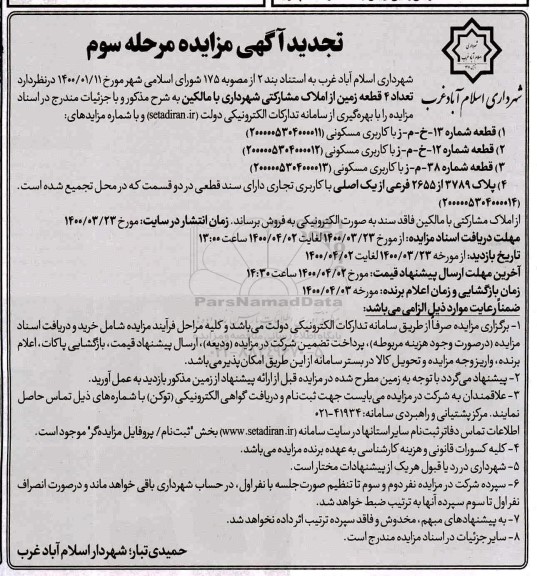 تجدید آگهی مزایده مرحله سوم
شهرداری اسلام آباد غرب
شهرداری اسلام آباد غرب به استناد بند ۲ از مصوبه ۱۷۵ شورای اسلامی شهر مورخ ۱۴۰۰/۰۱/۱۱ در نظر دارد
تعداد ۴ قطعه زمین از املاک مشارکتی شهرداری با مالکین به شرح مذکور و با جزئیات مندرج در اسناد
مزایده را با بهره‌گیری از سامانه تدارکات الکترونیکی دولت (setadiran.ir) و با شماره مزایده‌های:
۱) قطعه شماره ۱۳-خ-م-ز با کاربری مسکونی (۲۰۰۰۰۰۵۳۰۴۰۰۰۰۱۱)
۲) قطعه شماره ۱۲-خ-م-ز با کاربری مسکونی (۲۰۰۰۰۰۵۳۰۴۰۰۰۰۱۲)
۳) قطعه شماره ۳۸-م-ز با کاربری مسکونی (۲۰۰۰۰۰۵۳۰۴۰۰۰۰۱۳)
۴) پلاک ۳۷۸۹ از ۲۶۵۵ فرعی از یک اصلی با کاربری تجاری دارای سند قطعی در دو قسمت که در محل تجمیع شده است.
(۲۰۰۰۰۰۵۳۰۴۰۰۰۰۱۴)
از املاک مشارکتی با مالکین فاقد سند به صورت الکترونیکی به فروش برساند. زمان انتشار در سایت: مورخ ۱۴۰۰/۰۳/۲۳
مهلت دریافت اسناد مزایده: از مورخ ۱۴۰۰/۰۳/۲۳ لغایت ۱۴۰۰/۰۴/۰۲ ساعت ۱۳:۰۰
تاریخ بازدید: از مورخه ۱۴۰۰/۰۳/۲۳ لغایت ۱۴۰۰/۰۴/۰۲
آخرین مهلت ارسال پیشنهاد قیمت: مورخ ۱۴۰۰/۰۴/۰۲ ساعت ۱۴:۳۰
زمان بازگشایی و زمان اعلام برنده: مورخه ۱۴۰۰/۰۴/۰۳
ParsNamadData
ضمناً رعایت موارد ذیل الزامی می‌باشد:
۱- برگزاری مزایده صرفاً از طریق سامانه تدارکات الکترونیکی دولت می‌باشد و کلیه مراحل فرآیند مزایده شامل خرید و دریافت اسناد
مزایده (در صورت وجود هزینه مربوطه)، پرداخت تضمین شرکت در مزایده (ودیعه)، ارسال پیشنهاد قیمت، بازگشایی پاکات، اعلام
برنده، واریز وجه مزایده و تحویل کالا در بستر سامانه از این طریق امکان پذیر می‌باشد.
۲- پیشنهاد می‌گردد با توجه به زمین مطرح شده در مزایده قبل از ارائه پیشنهاد از زمین مذکور بازدید به عمل آورید.
۳- علاقمندان به شرکت در مزایده می‌بایست جهت ثبت‌نام و دریافت گواهی الکترونیکی (توکن) با شماره‌های ذیل تماس حاصل
نمایند. مرکز پشتیانی و راهبردی سامانه: ۴۱۹۳۴-۰۲۱
اطلاعات تماس دفاتر ثبت‌نام سایر استانها در سایت سامانه (www.setadiran.ir) بخش "ثبت‌نام / پروفایل مزایده‌گر" موجود است.
۴- کلیه کسورات قانونی و هزینه کارشناسی به عهده برنده مزایده می‌باشد.
۵- شهرداری در رد یا قبول هر یک از پیشنهادات مختار است.
۶- سپرده شرکت در مزایده نفر دوم و سوم تا تنظیم صورت جلسه با نفر اول، در حساب شهرداری باقی خواهد ماند و در صورت انصراف
نفر اول تا سوم سپرده آنها به ترتیب ضبط خواهد شد.
۷- به پیشنهادهای مبهم، مخدوش و فاقد سپرده ترتیب اثر داده نخواهد شد.
۸- سایر جزئیات در اسناد مزایده مندرج است.
حمیدی‌تبار؛ شهردار اسلام آباد غرب